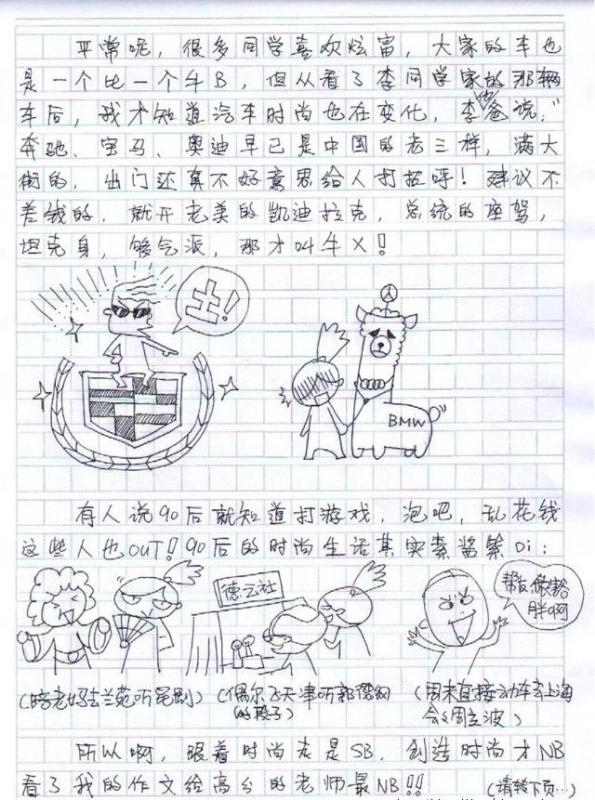 平常呢，很多同学喜欢炫富，大家的车也
是一个比一个牛B，但从看了李同学家的那辆
车后，我才知道汽车时尚也在变化，李他爸说，"
奔驰、宝马、奥迪早已是中国的老三样，满大
街的，出门还真不好意思给人打招呼！建议不
差钱的，就开老美的凯迪拉克，总统的座驾，
坦克身，够气派，那才叫牛X！
土！
BMW
有人说90后就知道打游戏，泡吧，乱花钱
这些人也OUT！90后的时尚生活其实素酱紫Di：
德云社
帮瓦做豁
胖啊
(陪老妈去兰苑听昆剧)
(偶尔飞天津听郭德纲
的段子)
(周末直接动车去上海
会会周立波)
所以啊，跟着时尚走是SB，创造时尚才NB
看了我的作文给高分的老师最NB!!
(请转下页…)